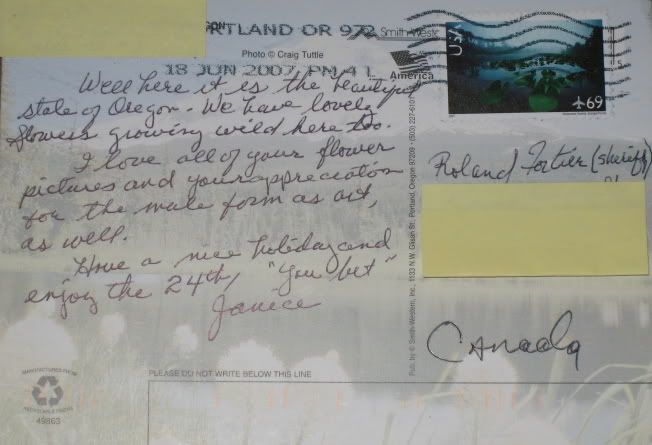 GON
PORTLAND OR 972
Smith-Weste
Photo © Craig Tuttle
18 JUN 2007 PM 4 L
America
USA
69
Well here it is the beautiful
state of Oregon. We have lovely
flowers growing wild here too.
I love all of your flower
pictures and your appreciation
for the male form as art,
as well.
Have a nice holiday and
enjoy the 24th, "you bet"
Janice
Roland Fortier (sheriff)
Canada
Pub. by © Smith-Western, Inc., 1133 N.W. Glisan St. Portland, Oregon 97209 • (503) 227-6101
PLEASE DO NOT WRITE BELOW THIS LINE
MANUFACTURED FROM
RECYCLABLE PAPER
49863